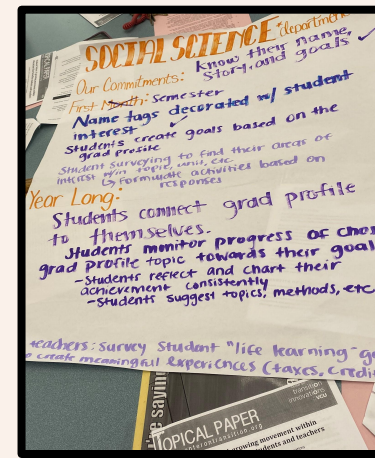 SOCIAL SCIENCE department
Our Commitments: Know their name,
Story, and goals ✓
First Month: Semester
Name tags decorated w/ student
interest ✓
Students create goals based on the
grad profile
Student Surveying to find their areas of
interest w/in topic, unit, etc
↳ formulate activities based on
responses
Year Long:
Students connect grad profile
to themselves.
Students monitor progress of
grad profile topic towards their goal
-Students reflect and chart their
achievement consistently
-Students suggest topics, methods, etc
teachers: survey student "life learning"
create meaningful experiences (taxes, credit
transition
innovations
vcu
TOPICAL PAPER
centerontransition.org
growing movement within
students and teachers